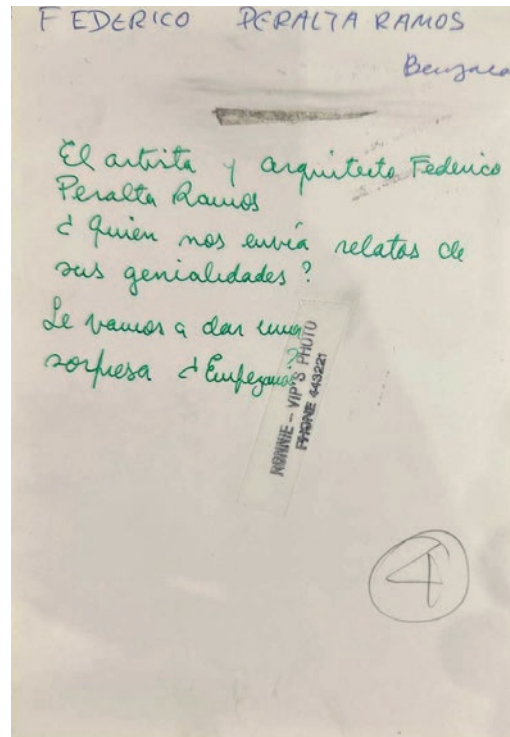 FEDERICO PERALTA RAMOS
El artista y arquitecto Federico
Peralta Ramos
¿Quien nos envía relatos de
sus genialidades?
Le vamos a dar una
sorpresa ¿Empezamos?
RONNIE – VIP'S PHOTO
PHONE 443221